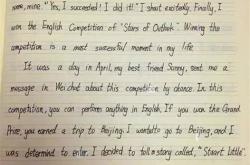 now, mine. "Yes, I succeeded! I did it!" I shout excitedly. Finally, I
won the English Competition of "Stars of Outlook". Winning the
competition is a most successful moment in my life.
It was a day in April, my best friend Sunny, sent me a
message in Wei chat about this competition by chance. In this
competition, you can perform anything in English. If you won the Grand
Prize, you earned a trip to Beijing. I wanted to go to Beijing, and I
was determined to enter. I decided to tell a story called, "Stuart Little